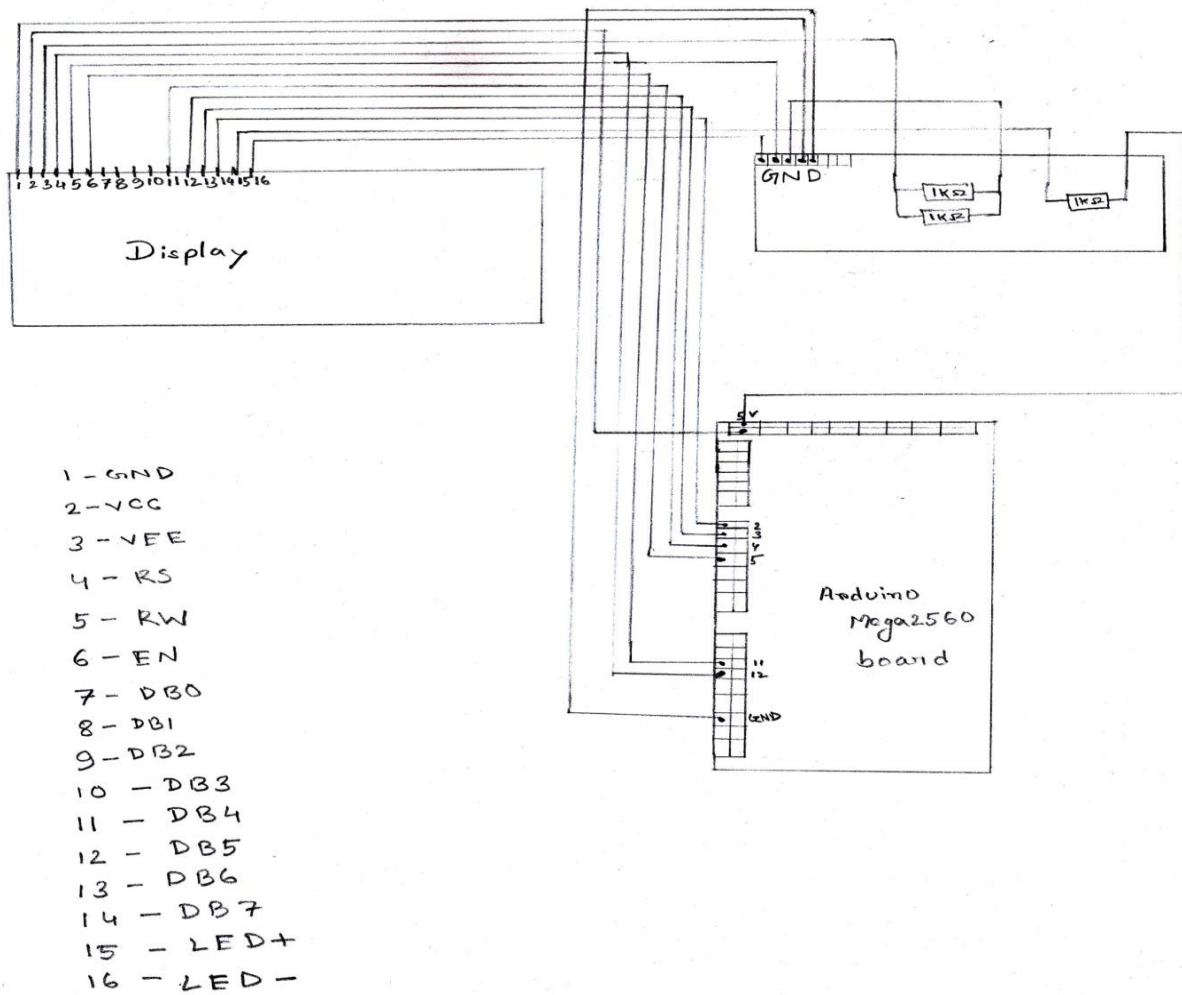 1 2 3 4 5 6 7 8 9 10 11 12 13 14 15 16
Display
GND
1KΩ
1KΩ
1KΩ
5V
2
3
4
5
11
12
GND
Arduino
Mega2560
board
1 - GND
2 - VCC
3 - VEE
4 - RS
5 - RW
6 - EN
7 - DB0
8 - DB1
9 - DB2
10 - DB3
11 - DB4
12 - DB5
13 - DB6
14 - DB7
15 - LED+
16 - LED-